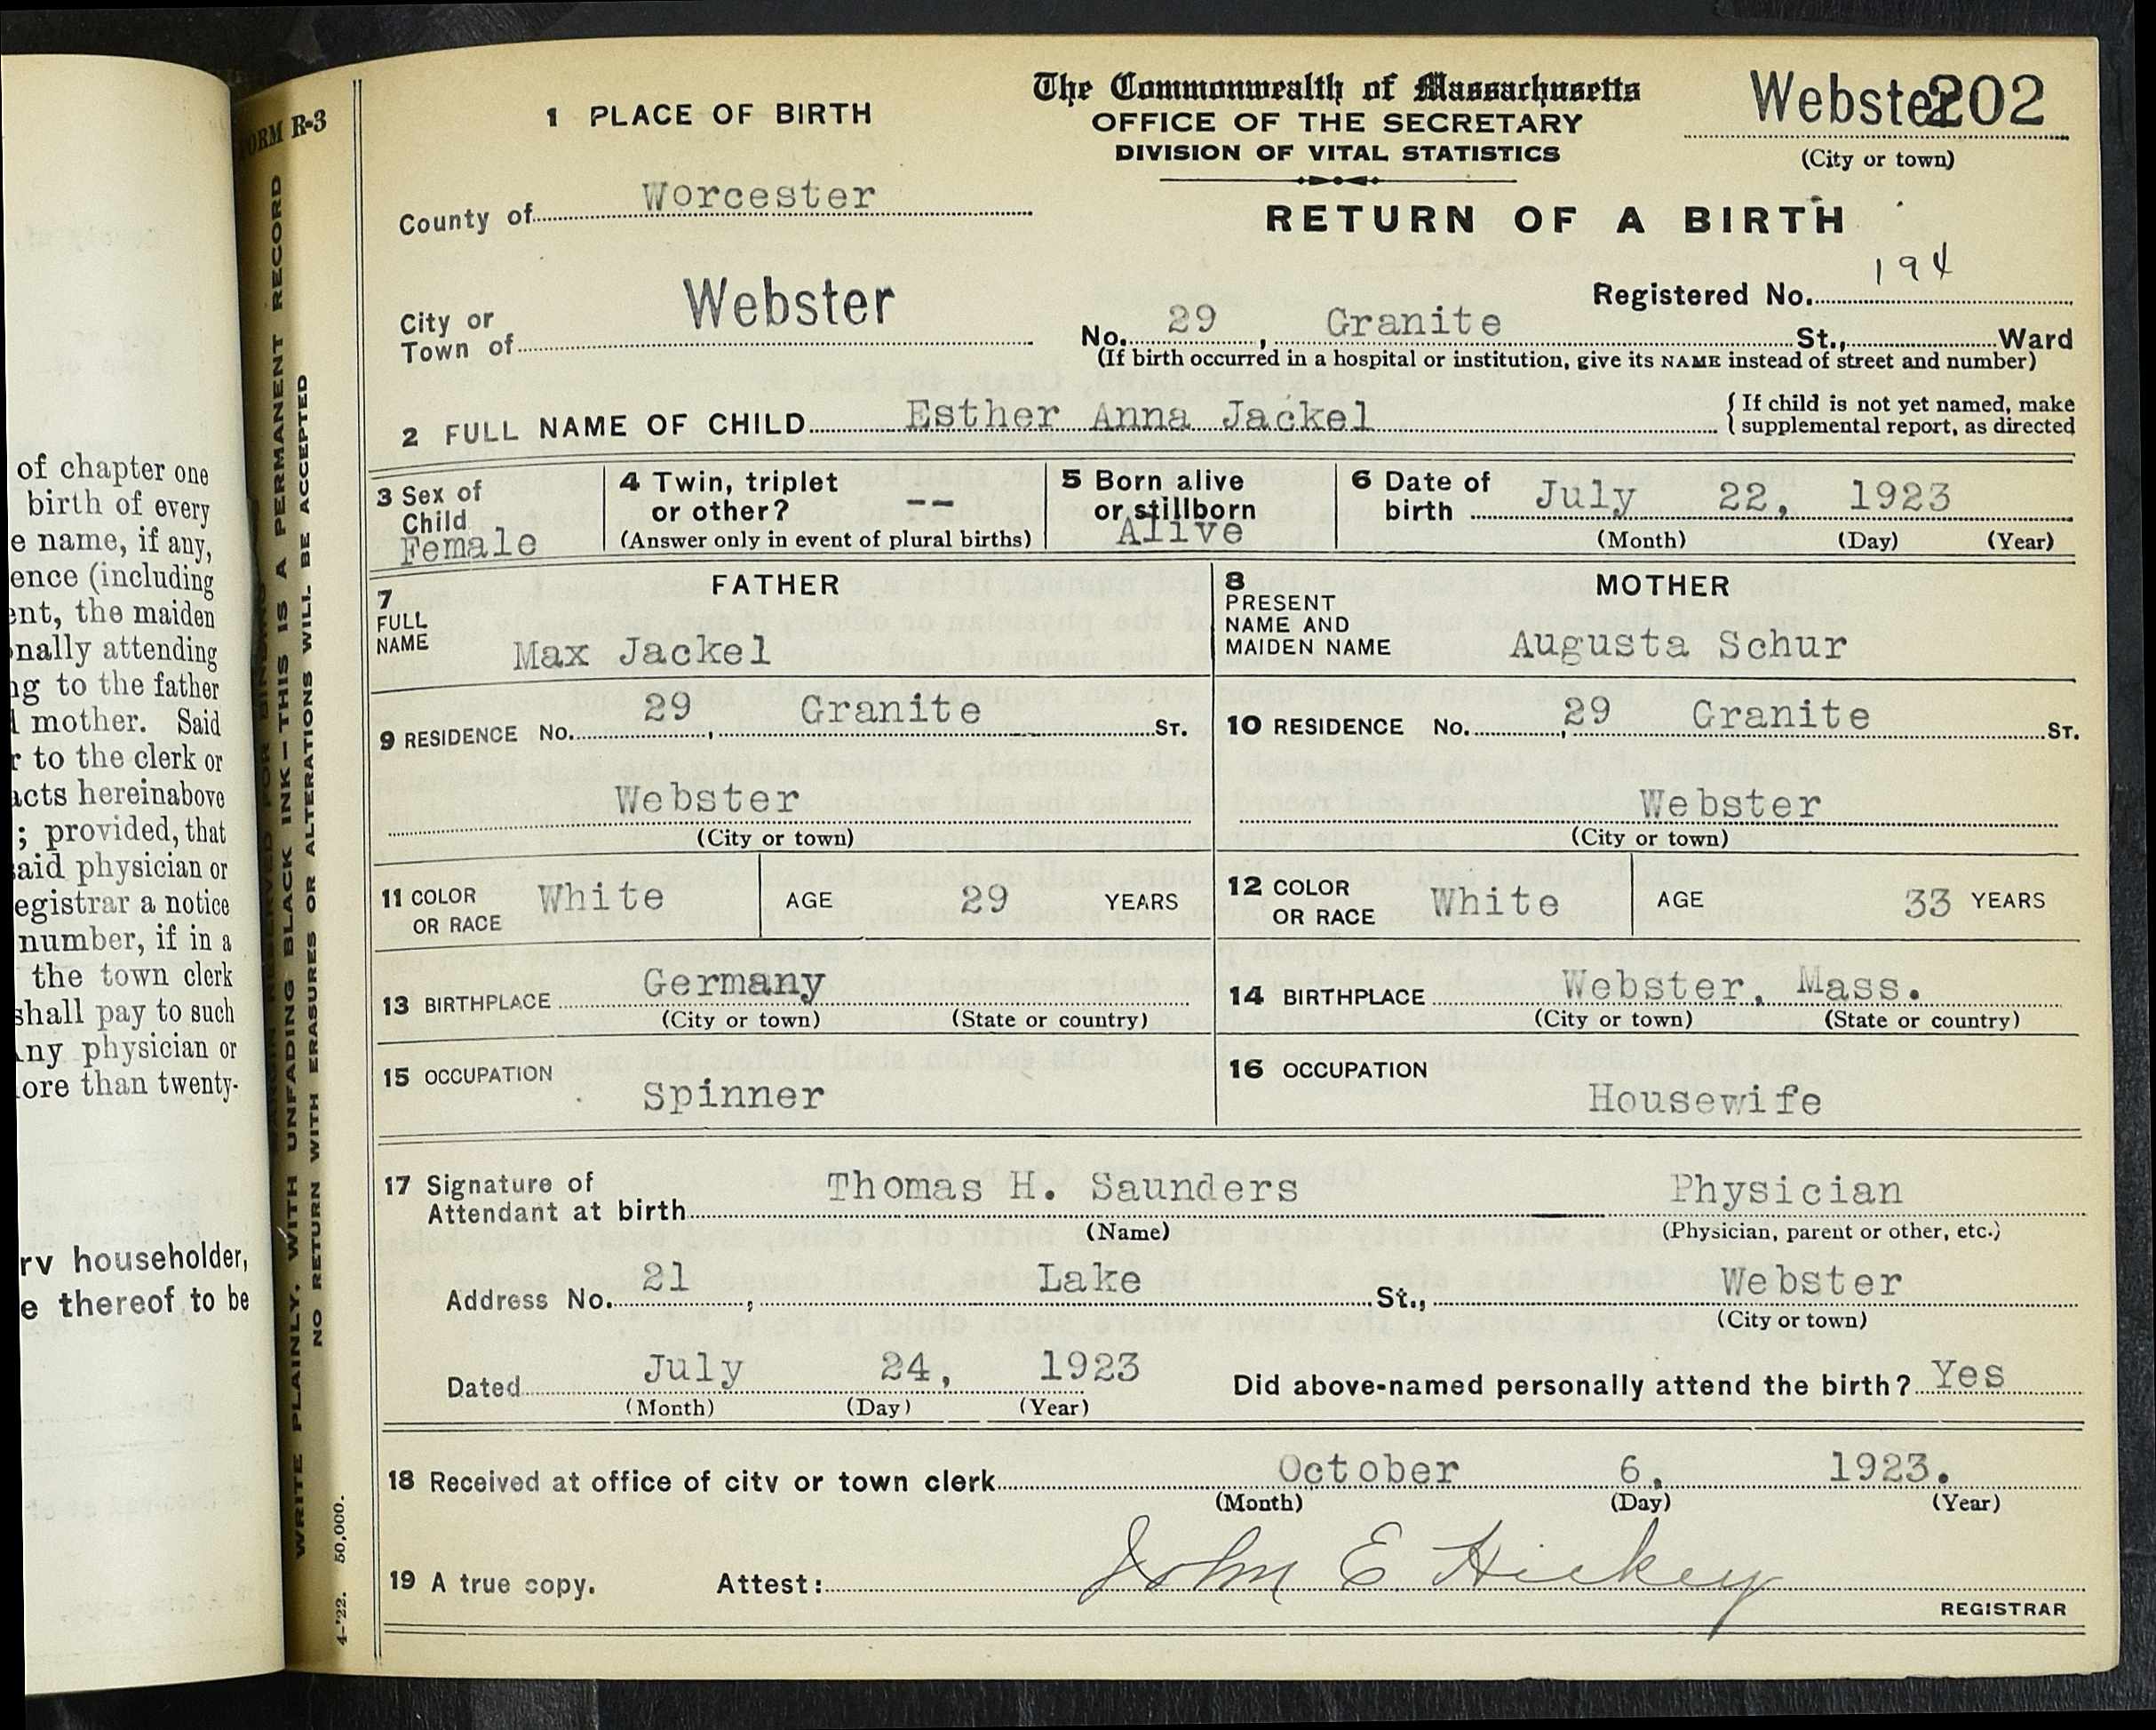 of chapter one
birth of every
e name, if any,
ence (including
ent, the maiden
onally attending
ng to the father
d mother. Said
r to the clerk or
acts hereinabove
; provided, that
said physician or
egistrar a notice
number, if in a
the town clerk
shall pay to such
Any physician or
ore than twenty-
ry householder,
e thereof to be
FORM R-3
MARGIN RESERVED FOR BINDING
WRITE PLAINLY, WITH UNFADING BLACK INK—THIS IS A PERMANENT RECORD
NO RETURN WITH ERASURES OR ALTERATIONS WILL BE ACCEPTED
4-'22. 50,000.
The Commonwealth of Massachusetts
OFFICE OF THE SECRETARY
DIVISION OF VITAL STATISTICS
RETURN OF A BIRTH
Webster 202
(City or town)
Registered No. 194
1 PLACE OF BIRTH
County of Worcester
City or Town of Webster
No. 29, Granite St., Ward
(If birth occurred in a hospital or institution, give its NAME instead of street and number)
2 FULL NAME OF CHILD Esther Anna Jackel
{ If child is not yet named, make
supplemental report, as directed
3 Sex of Child Female
4 Twin, triplet or other? --
(Answer only in event of plural births)
5 Born alive or stillborn Alive
6 Date of birth July 22, 1923
(Month) (Day) (Year)
FATHER
7 FULL NAME Max Jackel
MOTHER
8 PRESENT NAME AND MAIDEN NAME Augusta Schur
9 RESIDENCE No. 29, Granite ST.
10 RESIDENCE No. 29, Granite ST.
Webster
(City or town)
Webster
(City or town)
11 COLOR OR RACE White AGE 29 YEARS
12 COLOR OR RACE White AGE 33 YEARS
13 BIRTHPLACE Germany
(City or town) (State or country)
14 BIRTHPLACE Webster, Mass.
(City or town) (State or country)
15 OCCUPATION Spinner
16 OCCUPATION Housewife
17 Signature of Attendant at birth Thomas H. Saunders Physician
(Name) (Physician, parent or other, etc.)
Address No. 21, Lake St., Webster
(City or town)
Dated July 24, 1923 Did above-named personally attend the birth? Yes
(Month) (Day) (Year)
18 Received at office of city or town clerk October 6, 1923.
(Month) (Day) (Year)
19 A true copy. Attest: John E Hickey
REGISTRAR